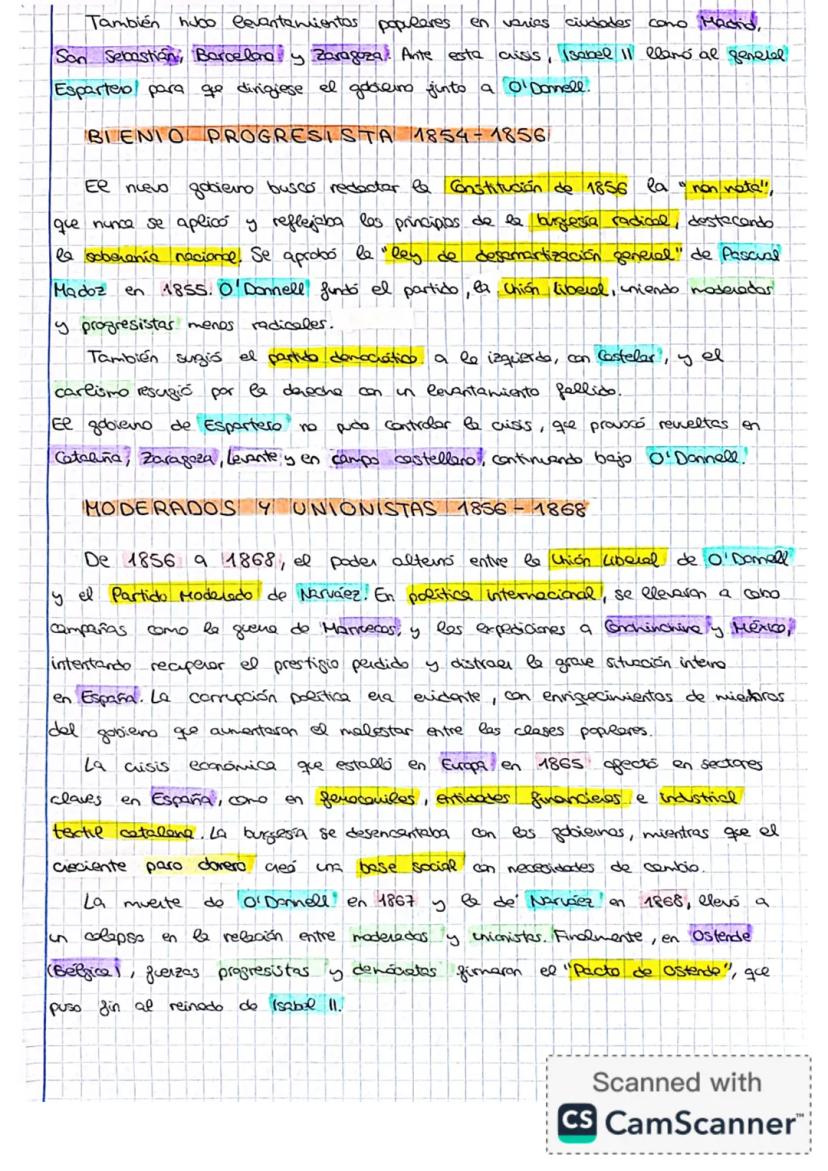 También hubo levantamientos populares en varias ciudades como Madrid,
San Sebastián, Barcelona y Zaragoza. Ante esta crisis, Isabel II llamó al general
Espartero para qe dirigiese el gobierno junto a O'Donnell.
BIENIO PROGRESISTA 1854-1856
El nuevo gobierno buscó redactar la Constitución de 1856 la "non nata",
que nunca se aplicó y reflejaba los principios de la burgesía radical, destacando
la soberanía nacional. Se aprobó la "ley de desamortización general" de Pascual
Madoz en 1855. O'Donnell fundó el partido, la Unión liberal, uniendo moderados
y progresistas menos radicales.
También surgió el partido democrático a la izquierda, con Castelar, y el
carlismo resurgió por la derecha con un levantamiento fallido.
El gobierno de Espartero no pudo controlar la crisis, que provocó revueltas en
Cataluña, Zaragoza, Levante y en campo castellano, continuando bajo O'Donnell.
MODERADOS Y UNIONISTAS 1856-1868
De 1856 a 1868, el poder alternó entre la Unión Liberal de O'Donnell
y el Partido Moderado de Narváez. En política internacional, se llevaron a cabo
campañas como la guerra de Marruecos, y las expediciones a Conchinchina y México,
intentando recuperar el prestigio perdido y distraer la grave situación interna
en España. La corrupción política era evidente, con enriqecimientos de miembros
del gobierno que aumentaron el malestar entre las clases populares.
La crisis económica que estalló en Europa en 1865 afectó en sectores
claves en España, como en ferrocarriles, entidades financieras e industrial
textil catalana. La burgesía se desencantaba con los gobiernos, mientras que el
creciente paro obrero creó una base social con necesidades de cambio.
La muerte de O'Donnell en 1867 y la de Narváez en 1868, llevó a
un colapso en la relación entre moderados y unionistas. Finalmente, en Ostende
(Bélgica), fuerzas progresistas y demócratas firmaron el "Pacto de Ostende", que
puso fin al reinado de Isabel II.
Scanned with
CS CamScanner™